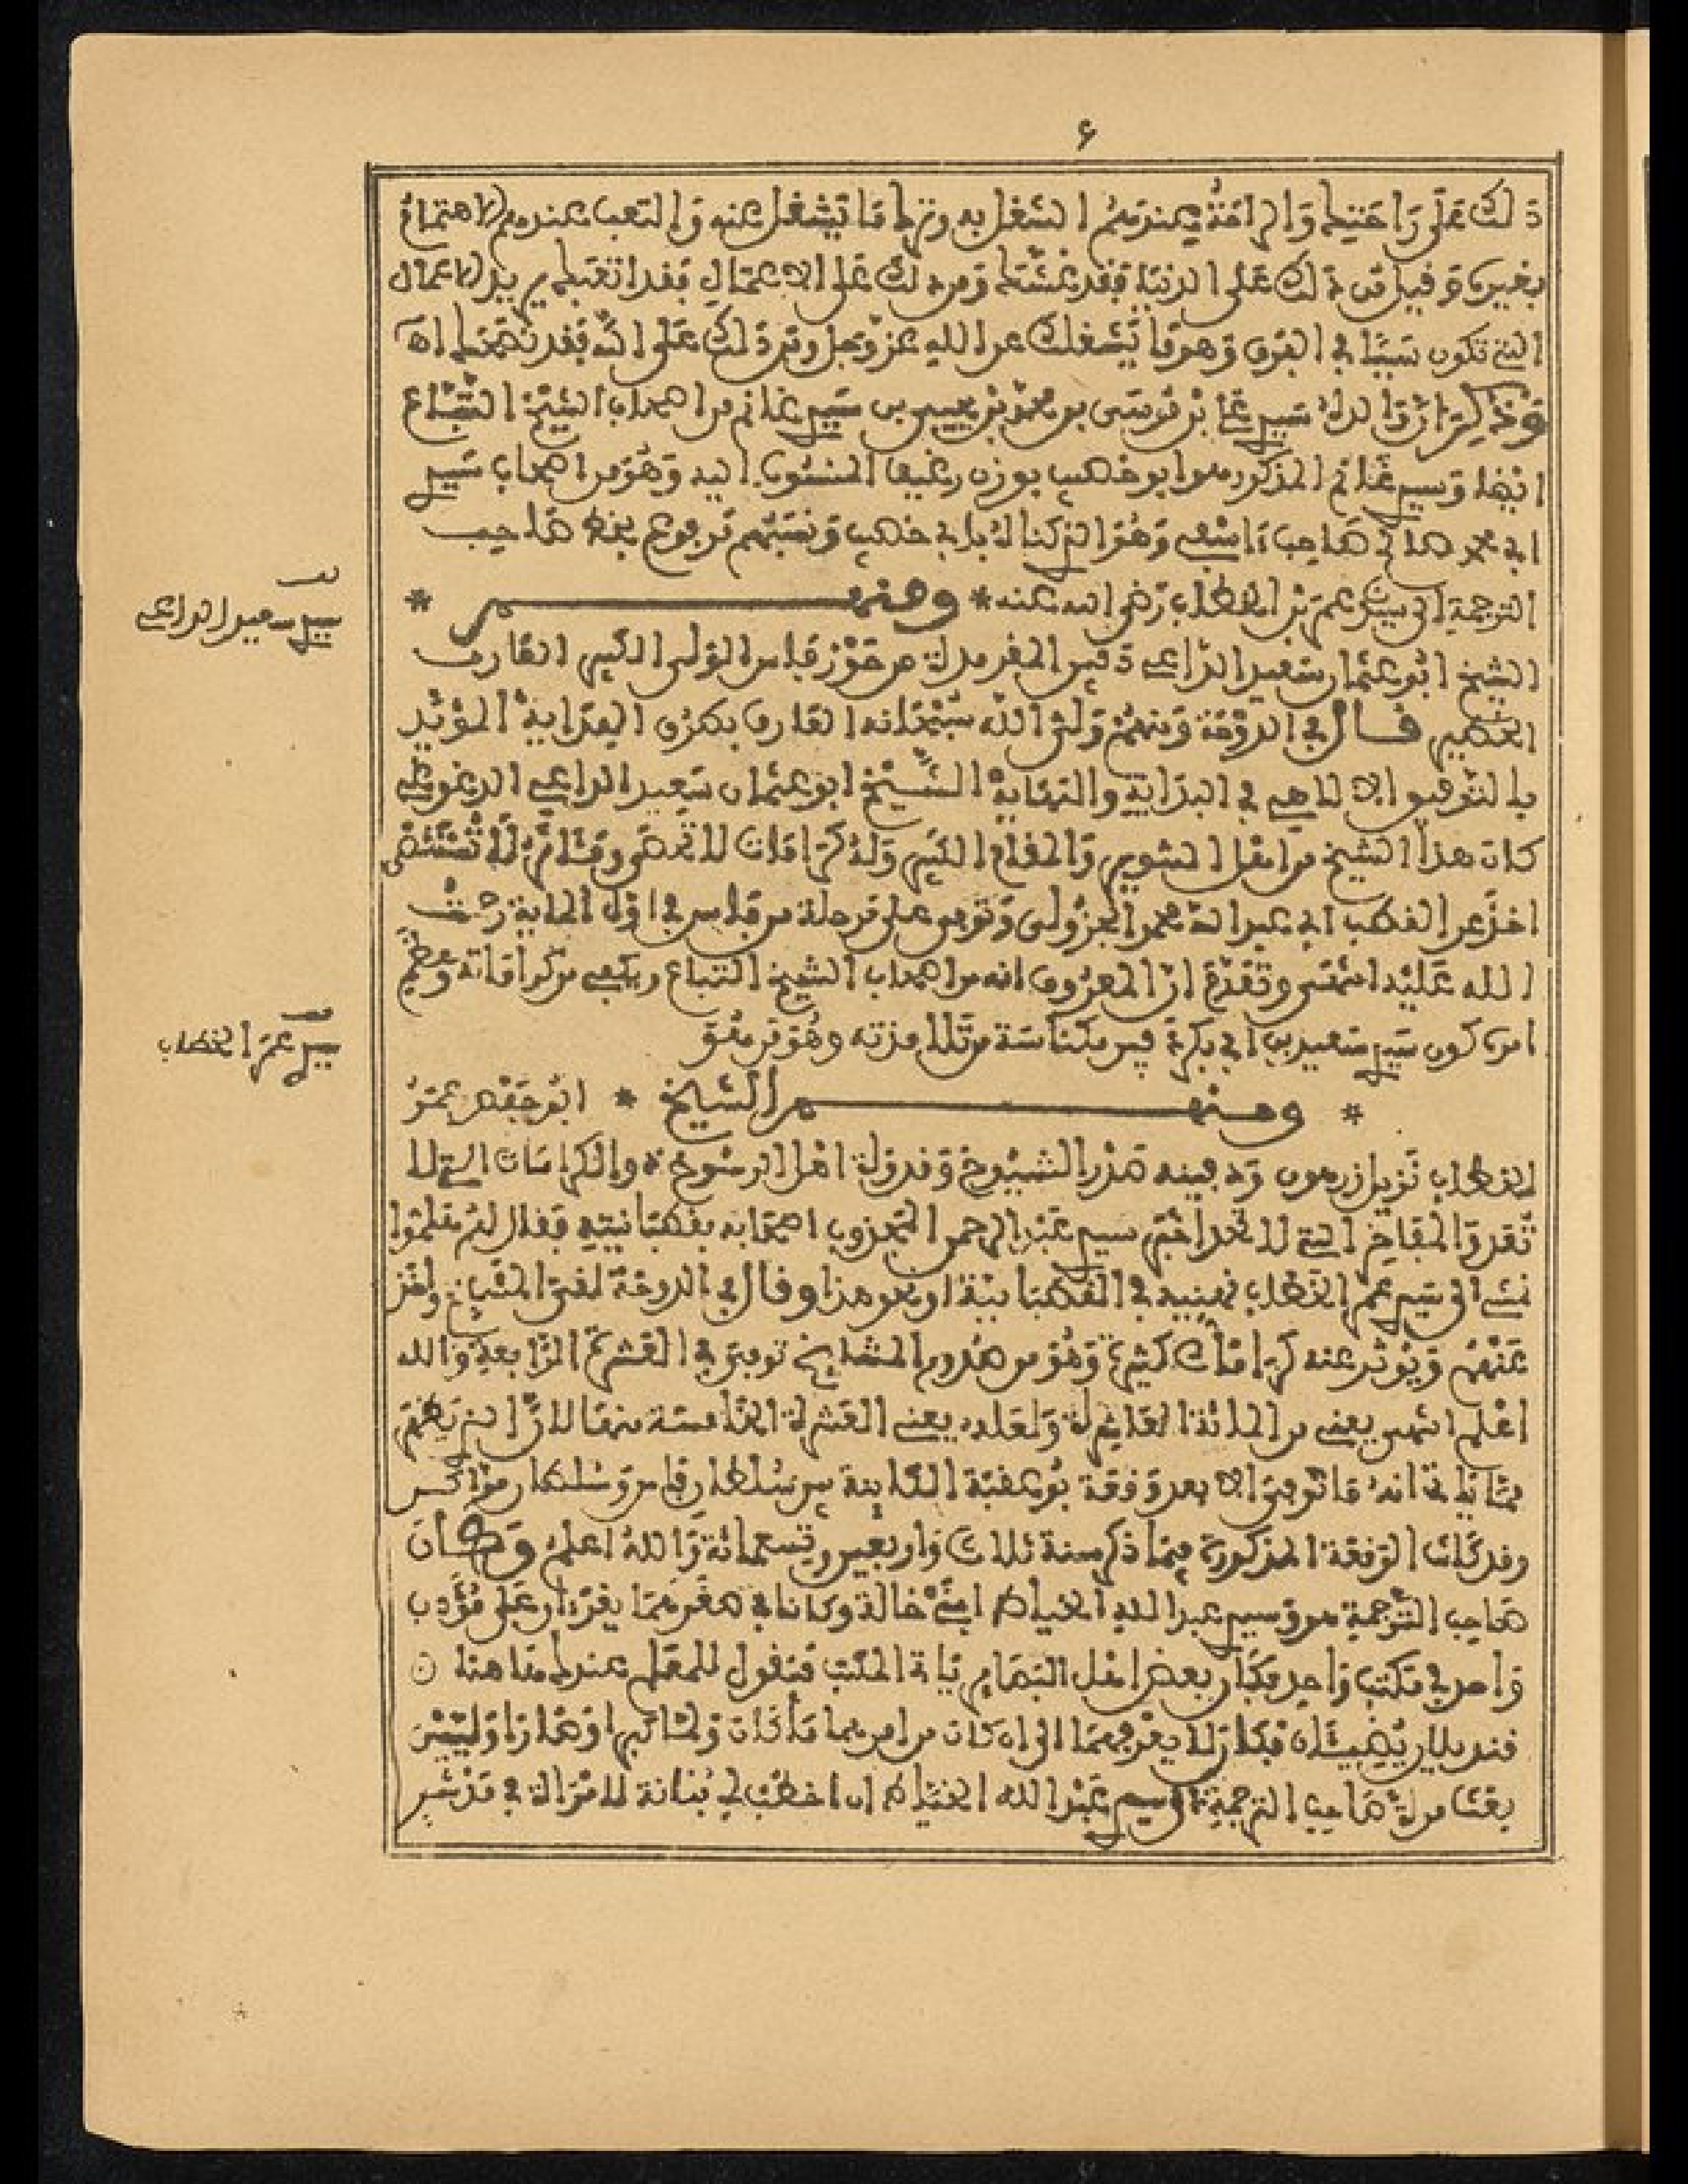 ٤
ذلك على راحتك والراحة عندهم الشغل به وترك ما يشغل عنه والتعب عندهم الاهتمام
بغيره وقيل من دلك على الدنيا فقد غشك ومن دلك على الاعمال فقد اتعبك يريد الاعمال
التي تكون سببا في الفرق وهو ما يشغلك عن الله عز وجل ومن دلك على الله فقد نصحك اه
وذكر ان والده سيدي علي بن موسى بن محمد بن يحيى بن سيدي غانم من اصحاب الشيخ التباع
ايضا وسيدي غانم المذكور هو ابو خصيب بوزن رغيف المنسوب اليه وهو من اصحاب سيدي
ابي محمد صالح صاحب اسفي وهو الذي كناه بابي خصيب ونسبهم مرفوع بخط صاحب
الترجمة الى سيدنا عمر بن الخطاب رضي الله عنه * ومنهم *
الشيخ ابو عثمان سعيد الراعي دفين المفرمدة من حوز فاس الولي الكبير العارف
الخطير قال في الدوحة ومنهم ولي الله سبحانه العارف بطرق الهداية المؤيد
بالتوفيق الالاهي في البداية والنهاية الشيخ ابو عثمان سعيد الراعي الدغوغي
كان هذا الشيخ من اهل التنوير والمقام الكبير وله كرامات لا تحصى ومناقب لا تستقصى
اخذ عن القطب ابي عبد الله محمد الجزولي وتوفي على مرحلة من فاس في اول الماية رحمت
الله عليه انتهى وتقدم ان المعروف انه من اصحاب الشيخ التباع ويكفي من كراماته وعظيم
امره كون سيدي سعيد بن ابي بكر دفين مكناسة من تلامذته وهو من هو
* ومنهم الشيخ * ابو حفص عمر
الخطاب نزيل زرهون ودفينه صدر الشيوخ وقدوة اهل الرسوخ ذو الكرامات التي لا
تعد والمفاخر التي لا تحد اخبر سيدي عبد الرحمن المجذوب اصحابه بقطبانيته وقال لهم تعلموا
نسي الى سيدي عمر الخطاب نصيبه في القطبانية او نحو هذا وقال في الدوحة لقي المشايخ واخذ
عنهم ويؤثر عنه كرامات كثيرة وهو من صدور المشايخ توفي في العشرة الرابعة والله
اعلم انتهى يعني من المائة العاشرة ولعله يعني العشرة الخامسة منها لان الذي يظهر
مما ياتي انه ما توفي الا بعد وقعة بوعقبة الكاينة بين سلطان فاس وسلطان مراكش
وقد كانت الوقعة المذكورة فيما ذكر سنة ثلاث واربعين وتسعمائة والله اعلم وكان
صاحب الترجمة هو وسيدي عبد الله الخياط ابني خالة وكانا في صغرهما يقرءان على مؤدب
واحد في مكتب واحد فكان بعض اهل البصاير ياتي المكتب فيقول للمعلم عندك هاهنا
قنديلان يضيئان فكان لا يعرفهما الى ان كان من امرهما ما كان ولما كبرا وصارا وليين
بعث له صاحب الترجمة وسيدي عبد الله الخياط ان اخطب لي بنانة لامراة في مدشر
سيدي سعيد الراعي
سيدي عمر الخطاب